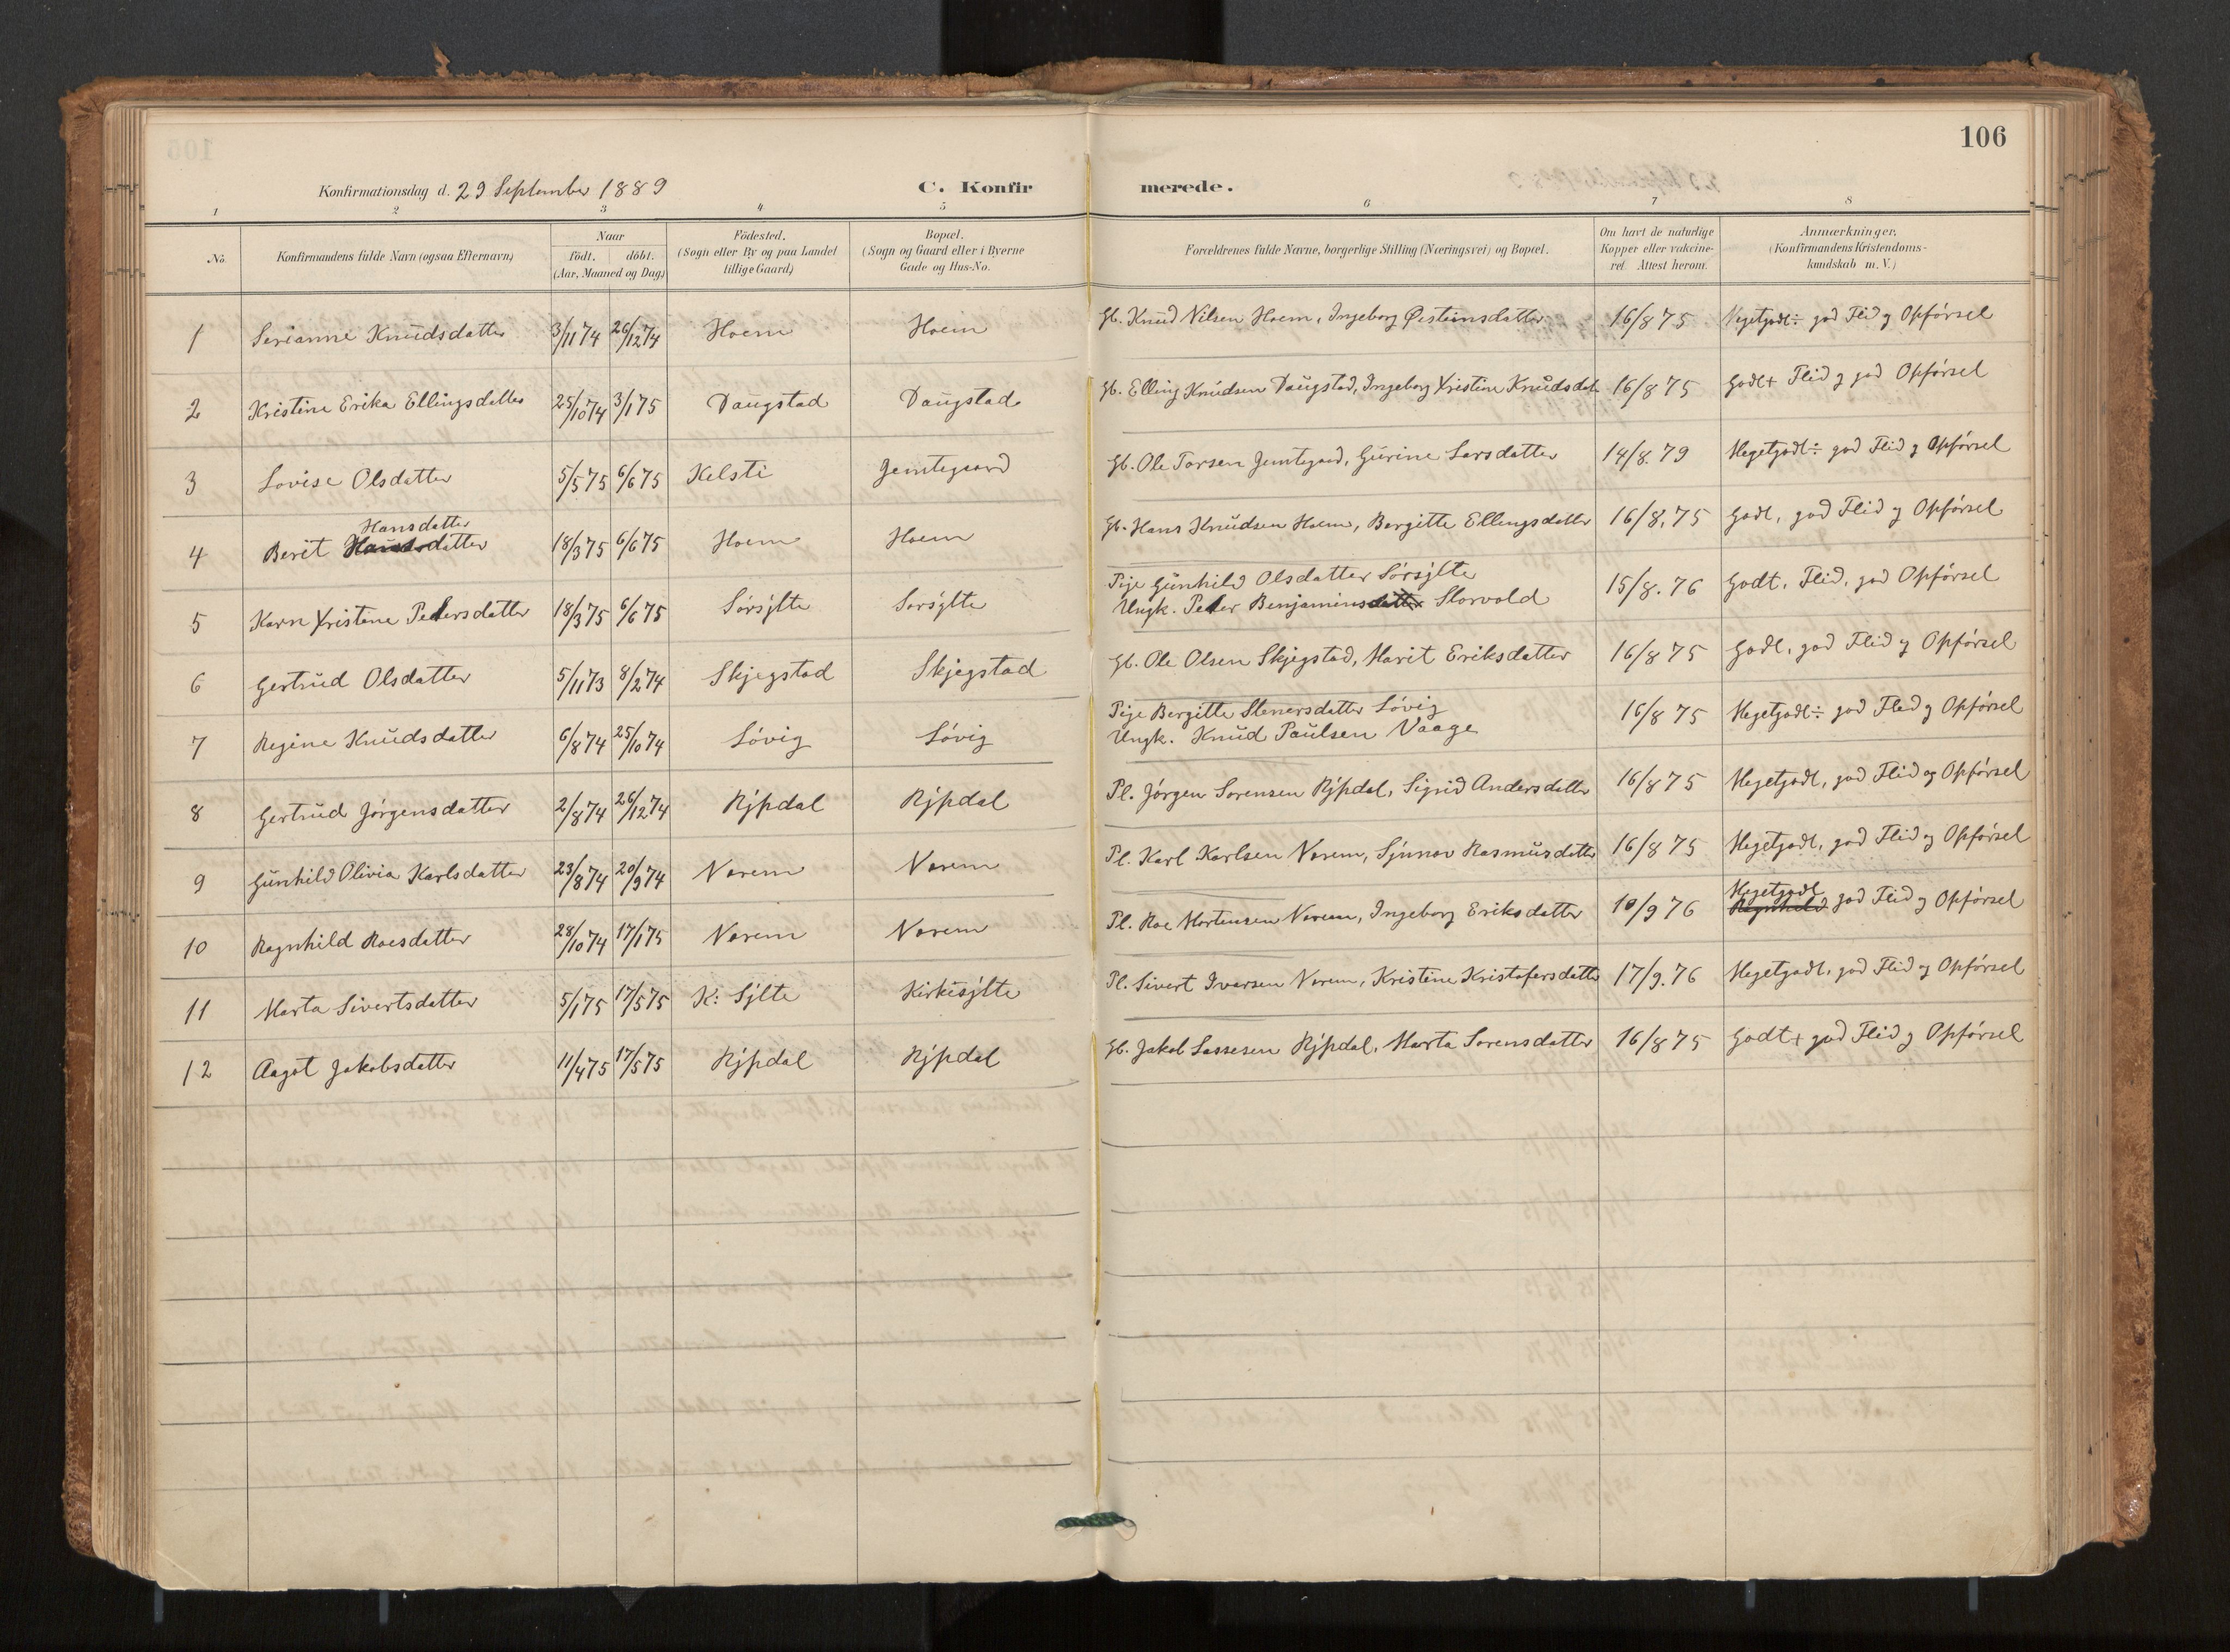 106
Konfirmationsdag d. 29 September 1889
C. Konfirmerede.
1 2 3 4 5 6 7 8
No. | Konfirmandens fulde Navn (ogsaa Efternavn) | Naar födt. döbt. (Aar, Maaned og Dag) | Födested. (Sogn eller By og paa Landet tillige Gaard) | Bopæl. (Sogn og Gaard eller i Byerne Gade og Hus-No. | Forældrenes fulde Navne, borgerlige Stilling (Næringsvei) og Bopæl. | Om havt de naturlige Kopper eller vakcineret. Attest herom. | Anmærkninger. (Konfirmandens Kristendomskundskab m. V.)
1 | Serianne Knudsdatter | 3/11 74 | 26/12 74 | Hoem | Hoem | Gb. Knud Nilsen Hoem, Ingeborg Øistensdatter | 16/8 75 | Megetgodt÷ god Flid og Opförsel
2 | Kristine Erika Ellingsdatter | 25/10 74 | 3/1 75 | Daugstad | Daugstad | Gb. Elling Knudsen Daugstad, Ingeborg Kristine Knudsdatr | 16/8 75 | Godt+ Flid og god Opförsel
3 | Lovise Olsdatter | 5/5 75 | 6/6 75 | Kelsti | Jemtegaard | Gb. Ole Torsen Jemtegard, Gurine Larsdatter | 14/8. 79 | Megetgodt÷ god Flid og Opförsel
4 | Berit Hansdatter | 18/3 75 | 6/6 75 | Hoem | Hoem | Gb. Hans Knudsen Hoem, Bergitte Ellingsdatter | 16/8. 75 | Godt, god Flid og Opförsel
5 | Karn Kristene Petersdatter | 18/3 75 | 6/6 75 | Sörsylte | Sorsylte | Pige Gunhild Olsdatter Sörsylte
Ungk. Peter Benjamins Storvold | 15/8. 76 | Godt, Flid, god Opförsel
6 | Gertrud Olsdatter | 5/11 73 | 8/2 74 | Skjegstad | Skjegstad | Gb. Ole Olsen Skjegstad, Marit Eriksdatter | 16/8 75 | Godt, god Flid og Opförsel
7 | Regine Knudsdatter | 6/8 74 | 25/10 74 | Lövig | Lövig | Pige Bergitte Stenersdatter Lövig
Ungk. Knud Paulsen Vaage | 16/8 75 | Megetgodt÷ god Flid og Opförsel
8 | Gertrud Jörgensdatter | 2/8 74 | 26/12 74 | Rypdal | Rypdal | Pl. Jörgen Sorensen Rypdal, Sigrid Andersdatter | 16/8 75 | Megetgodt, god Flid og Opförsel
9 | Gunhild Olivia Karlsdatter | 23/8 74 | 20/9 74 | Vorem | Vorem | Pl. Karl Karlsen Vorem, Synnov Rasmusdatter | 16/8 75 | Megetgodt, god Flid og Opförsel
10 | Ragnhild Roesdatter | 28/10 74 | 17/1 75 | Vorem | Vorem | Pl. Roe Mortensen Vorem, Ingeborg Eriksdatter | 10/9 76 | Megetgodt god Flid og Opförsel
11 | Marta Sivertsdatter | 5/1 75 | 17/5 75 | K: Sylte | Kirkesylte | Pl. Sivert Iversen Vorem, Kristine Kristofersdatter | 17/9. 76 | Megetgodt, god Flid og Opförsel
12 | Aagot Jakobsdatter | 11/4 75 | 17/5 75 | Rypdal | Rypdal | Gb. Jakob Lassesen Rypdal, Marta Sorensdatter | 16/8 75 | Godt+ god Flid og Opförsel